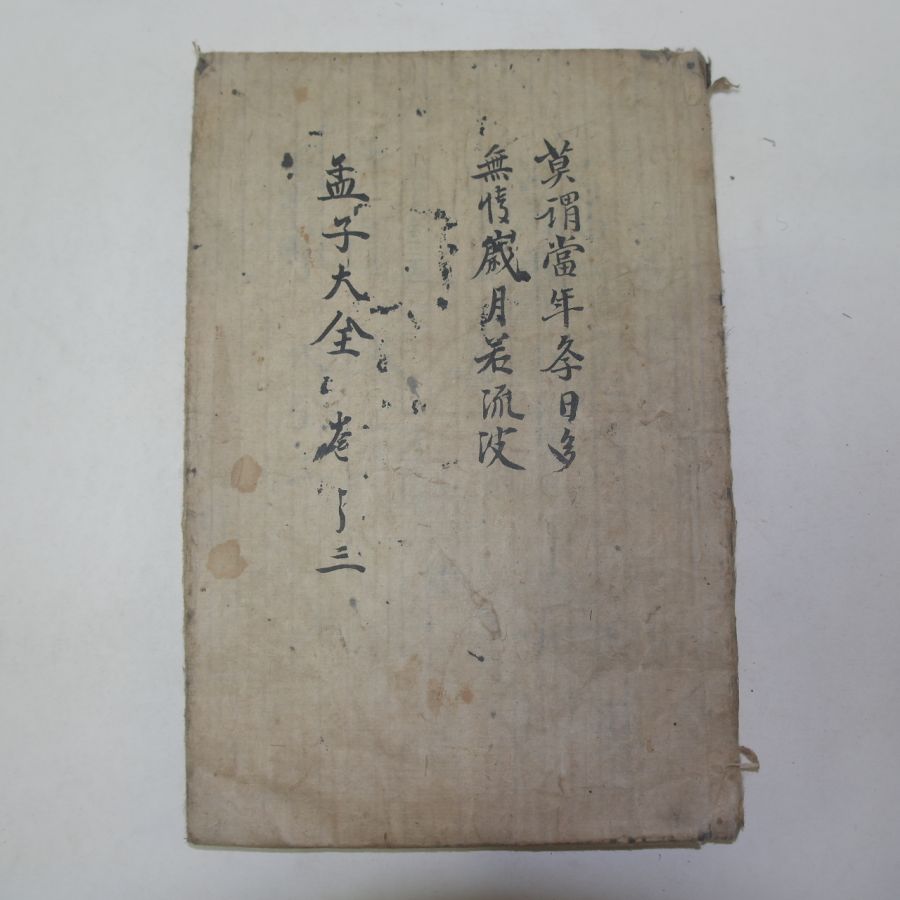 莫谓當年季日多
無情歲月若流波
孟子大全 卷之三